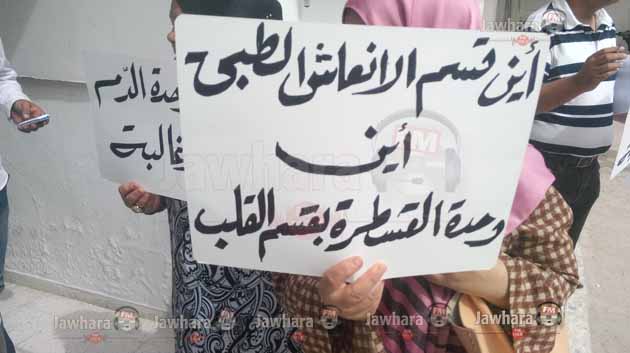 أين قسم الانعاش الطبي
أين
وحدة القسطرة بقسم القلب
وحدة الدّم
Jawhara FM
Jawhara FM
Jawhara FM
Jawhara FM
Jawhara FM
Jawhara FM
Jawhara FM
Jawhara